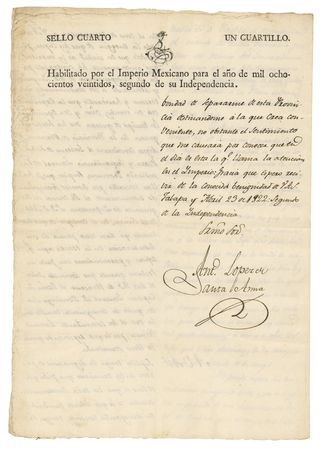 SELLO CUARTO
UN CUARTILLO.
Habilitado por el Imperio Mexicano para el año de mil ocho-
cientos veintidos, segundo de su Independencia.
bondad de separarme de esta Provin
cia destinandome a la que crea con-
veniente, no obstante el sentimiento
que me causaria por conocer que en
el dia es esta la qe. llama la atencion
en el Imperio: gracia que espero reci-
vir de la conocida benignidad de V.A.S.
Jalapa y Abril 23 de 1822. Segundo
de la Independencia.
Sermo. Sor.
Anto. Lopez de
Santa de Anna